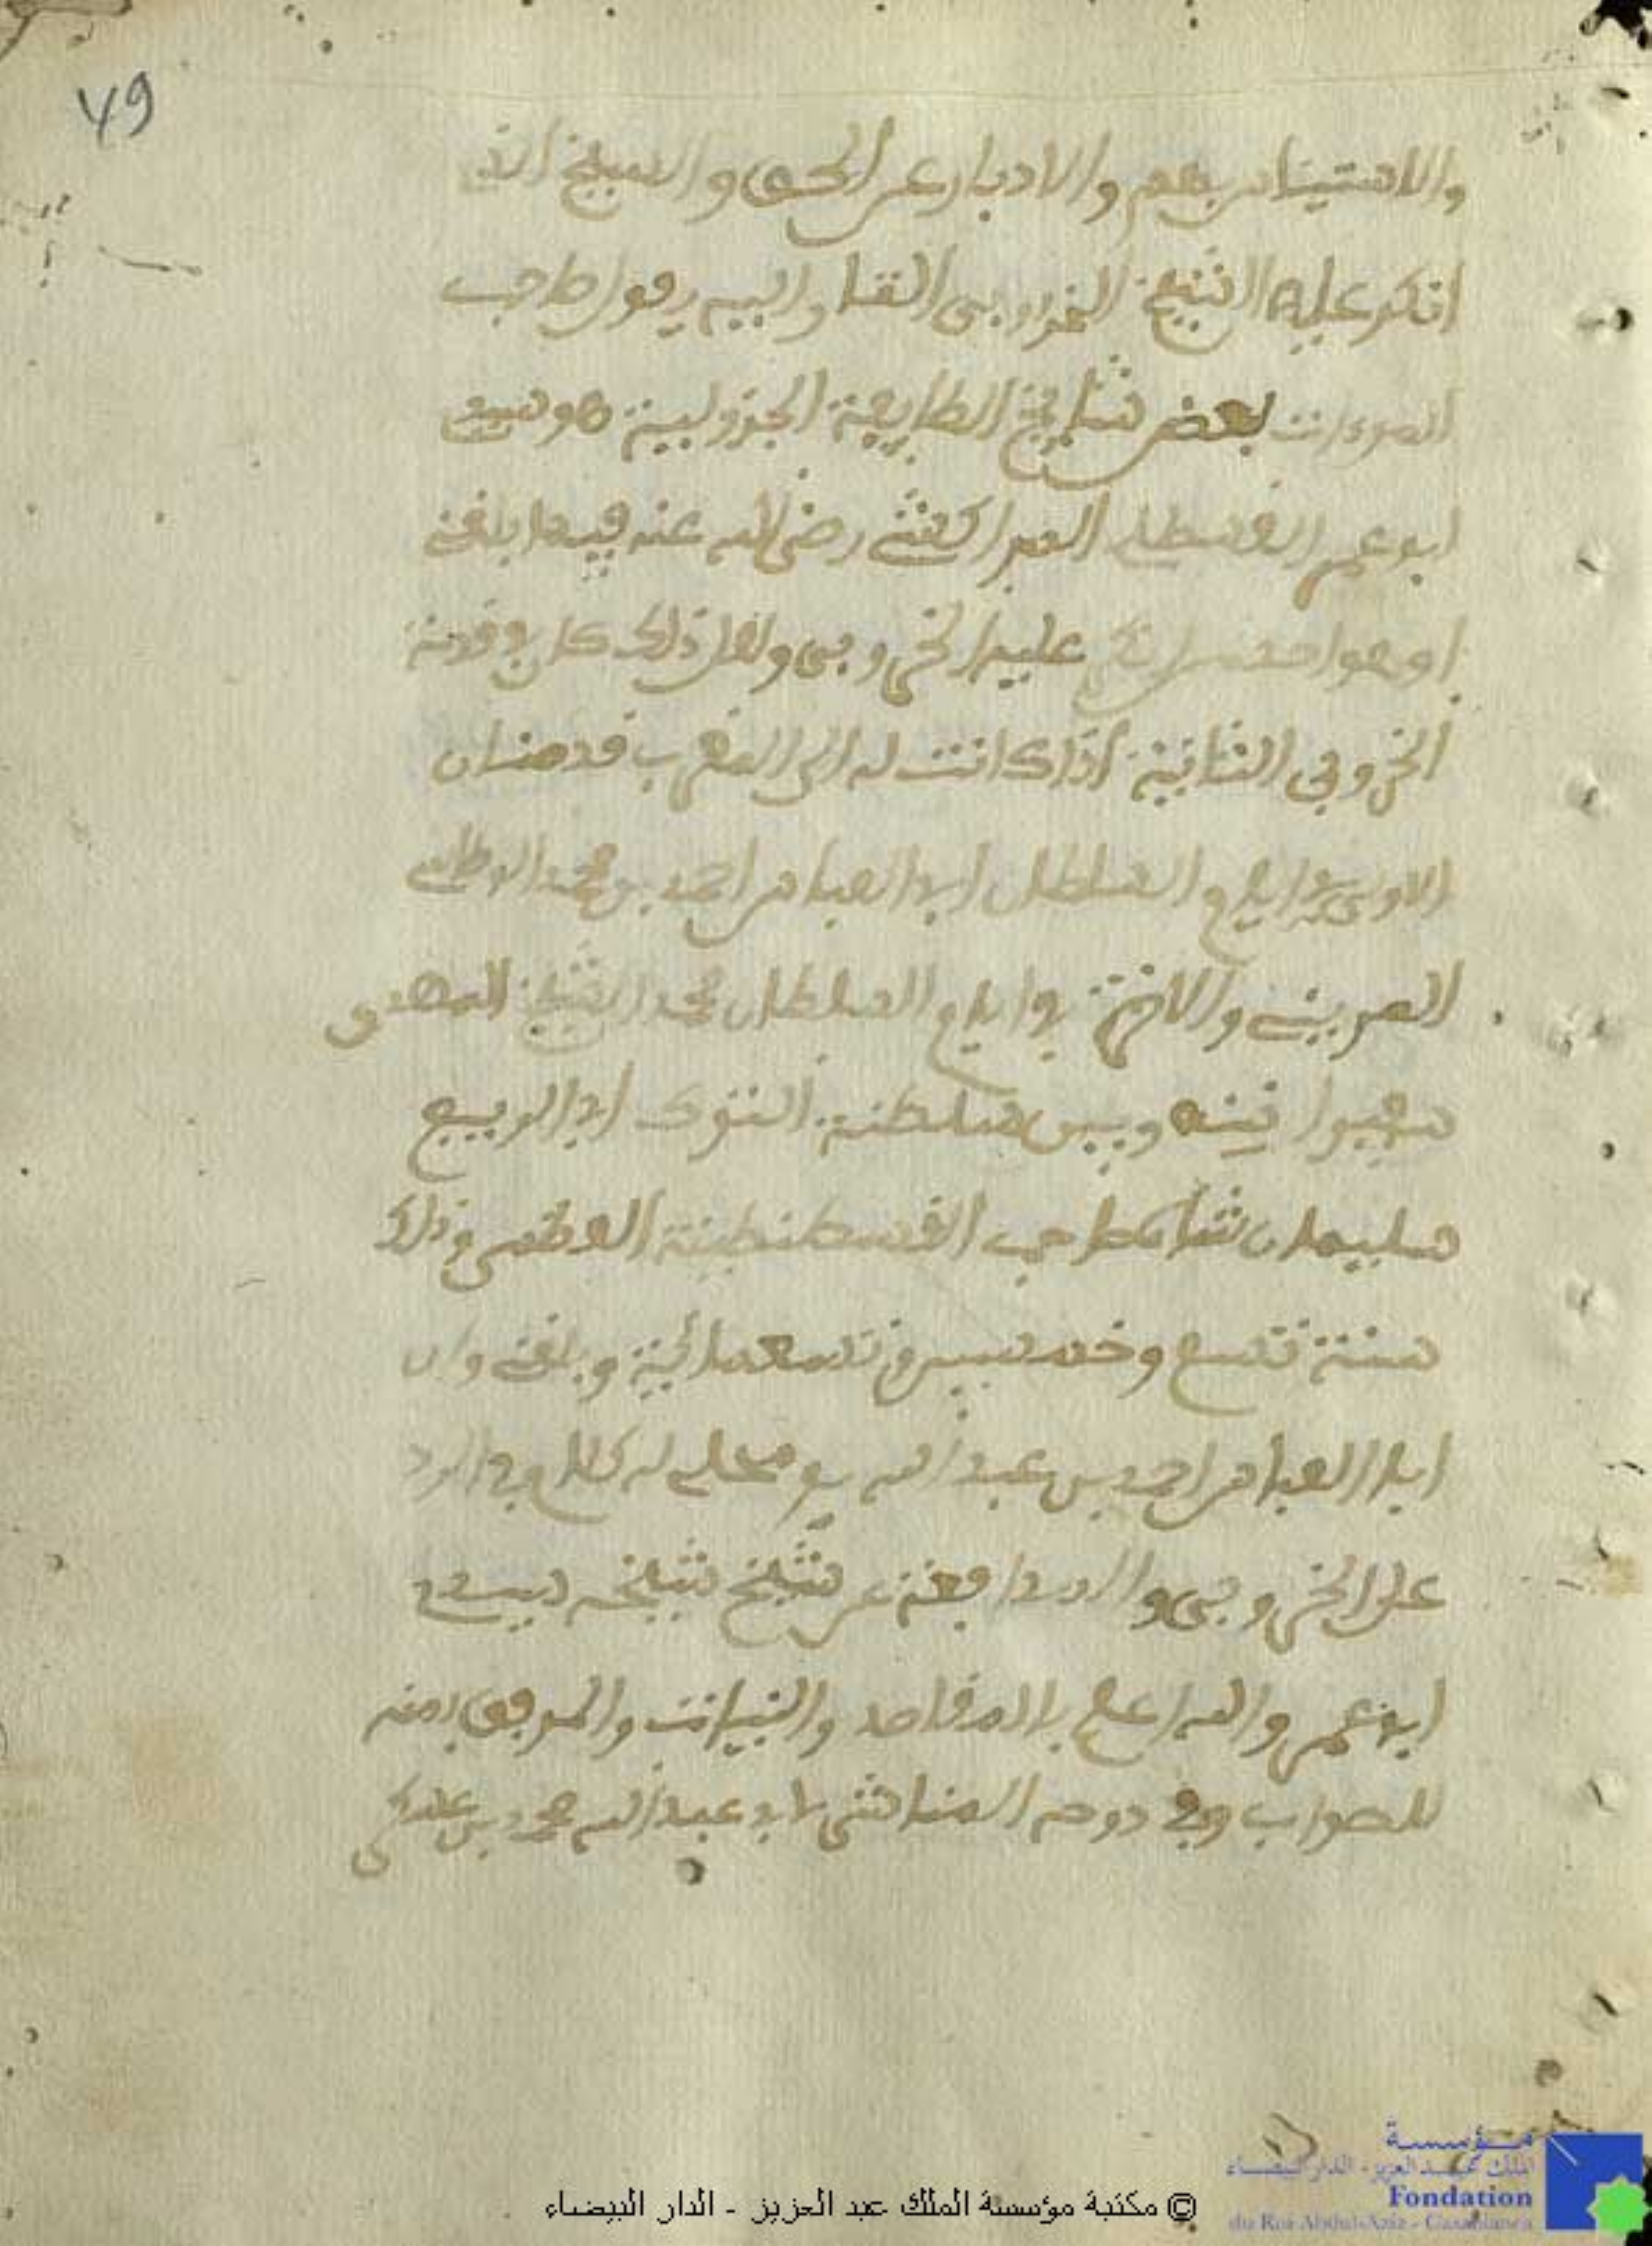 49
والاستيناس بهم والادبار عن الحق والشيخ الذ
انكر عليه الشيخ الخروبي القا واليه يقول صاحب
بعض مشايخ الطايفة الجزولية هو سيدي
ابو عمر القسطلي المراكشي رضي الله عنه فيما بلغني
او هو احد من عليه الخروبي ولعل ذلك كان في قدمة
الخروبي الثانية اذ كانت له الى المغرب قدمتان
الاولى في ايام السلطان ابي العباس احمد بن محمد الوطاسي
المريني والاخرى في ايام السلطان محمد الشيخ المهدي
سفيرا بينه وبين سلطنة الترك ابي الربيع
سليمان شاه صاحب القسطنطينية العظمى وذلك
سنة تسع وخمسين وتسعمائة وبلغني وان
ابا العباس احمد بن عبد الله محلى له كلام في الرد
على الخروبي والمدافعة عن شيخ شيخه سيدي
ابي عمر والله اعلم بالمقاصد والنيات والموفق بمنه
للصواب وفي دوحة الناشر لابي عبد الله محمد بن عسكر
© مكتبة مؤسسة الملك عبد العزيز - الدار البيضاء
مؤسسة
الملك عبد العزيز - الدار البيضاء
Fondation
du Roi Abdul-Aziz - Casablanca